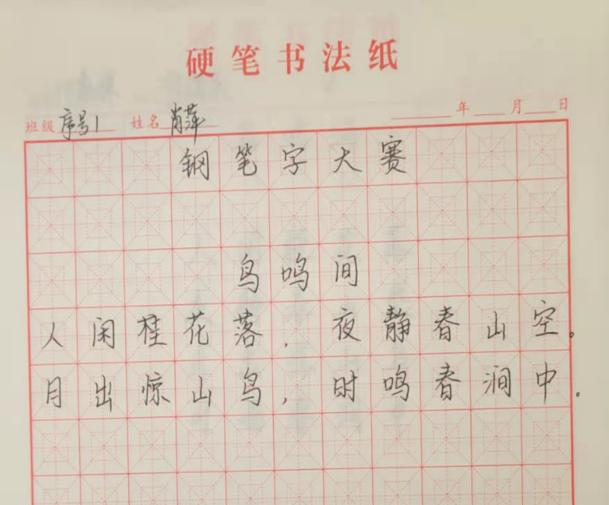 硬笔书法纸
班级 序号1 姓名 肖萍 年 月 日
钢笔字大赛
鸟鸣间
人闲桂花落，夜静春山空。
月出惊山鸟，时鸣春涧中。